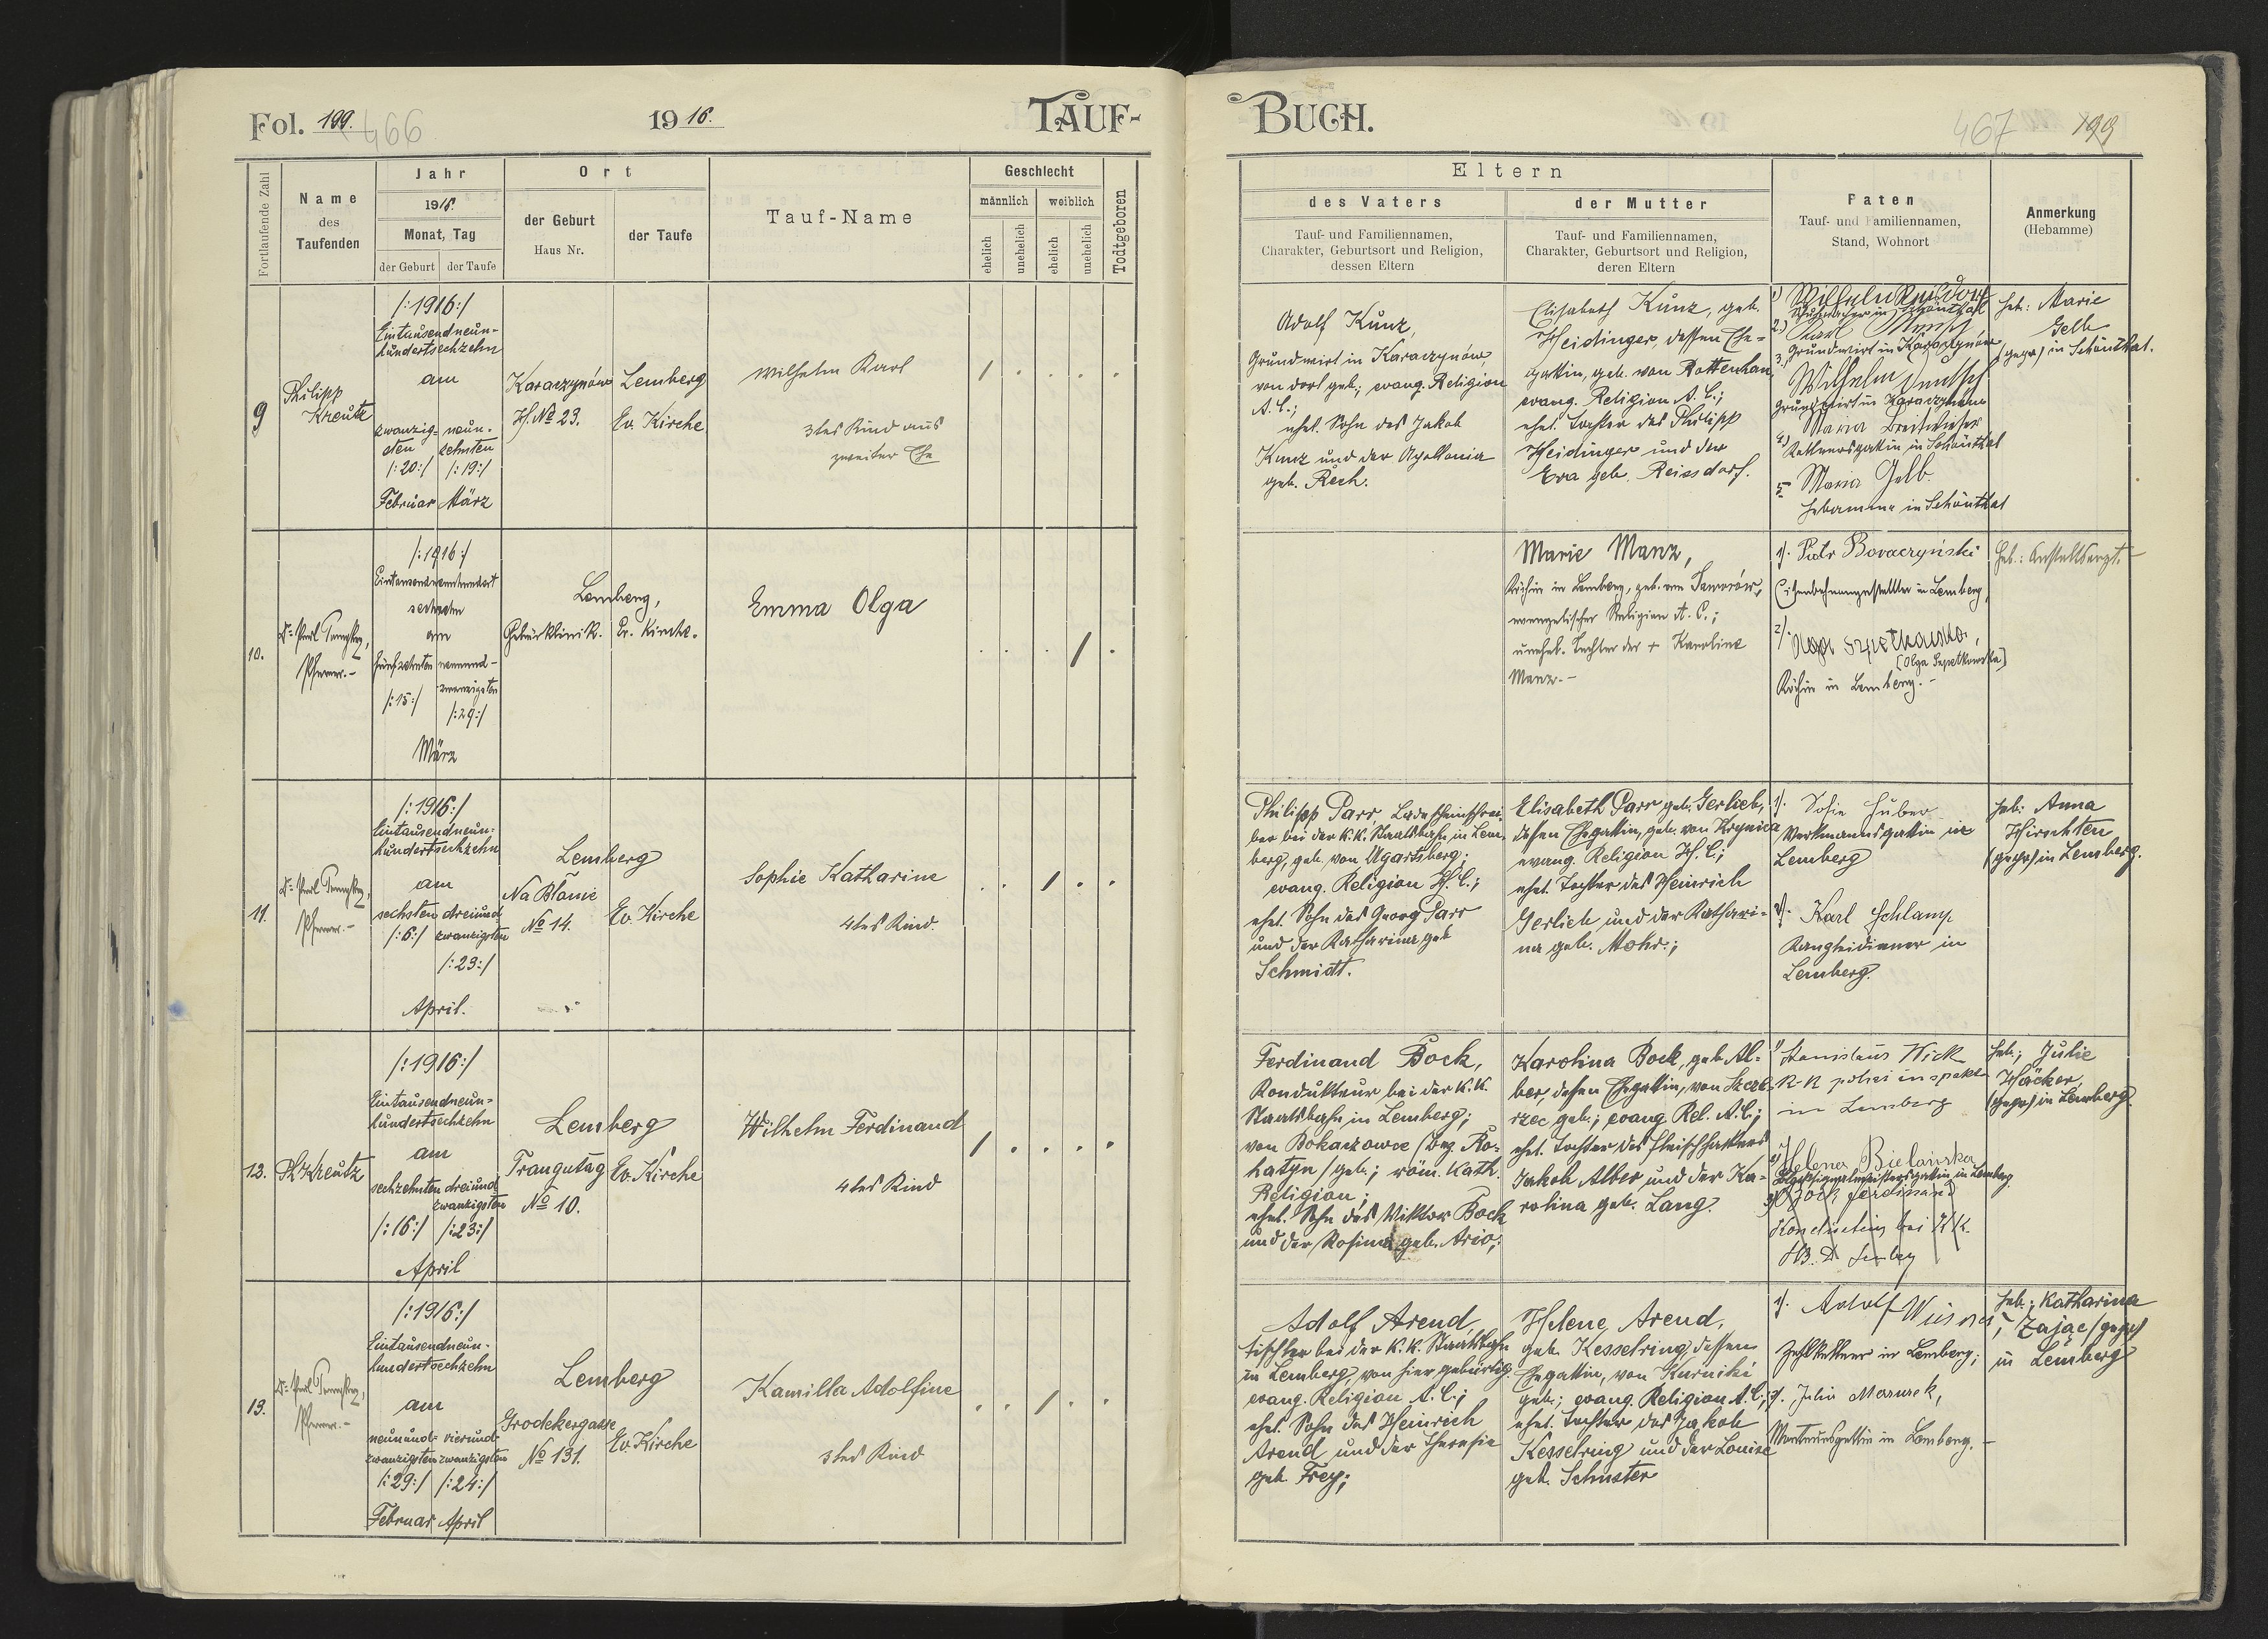 Fol. 199.
466
1916.
TAUF-
Fortlaufende Zahl
Name
des
Taufenden
Jahr
1916.
Monat, Tag
der Geburt
der Taufe
Ort
der Geburt
Haus Nr.
der Taufe
Tauf-Name
Geschlecht
männlich
weiblich
ehelich
unehelich
ehelich
unehelich
Todtgeboren
9
Philipp
Kreutz
/:1916:/
Eintausendneun-
hundertsechzehn
am
zwanzig-
sten
/:20:/
Februar
neun-
zehnten
/:19:/
März
Karaczynów
H. No 23.
Lemberg
Ev. Kirche
Wilhelm Karl
3tes Kind aus
zweiter Ehe
10.
Pfarrer.-
/:1916:/
Eintausendneunhundert
sechzehn
am
fünfzehnten
/:15:/
neunund-
zwanzigsten
/:29:/
März
Lemberg,
Gebärklinik.
Ev. Kirche.
Emma Olga
11.
Pfarrer.-
/:1916:/
Eintausendneun-
hundertsechzehn
am
sechsten
/:6:/
dreiund-
zwanzigsten
/:23:/
April.
Lemberg
Na Błonie
No 14.
Ev. Kirche
Sophie Katharine
4tes Kind.
12.
Ph. Kreutz
/:1916:/
Eintausendneun-
hundertsechzehn
am
sechzehnten
/:16:/
dreiund
zwanzigsten
/:23:/
April
Lemberg
Traugutag
No 10.
Ev. Kirche
Wilhelm Ferdinand
4tes Kind
13.
Pfarrer.-
/:1916:/
Eintausendneun-
hundertsechzehn
am
neunund-
zwanzigsten
/:29:/
Februar
vierund-
zwanzigsten
/:24:/
April
Lemberg
Grodekergasse
No 131.
Ev. Kirche
Kamilla Adolfine
3tes Kind
BUCH.
467
199
Eltern
des Vaters
Tauf- und Familiennamen,
Charakter, Geburtsort und Religion,
dessen Eltern
der Mutter
Tauf- und Familiennamen,
Charakter, Geburtsort und Religion,
deren Eltern
Paten
Tauf- und Familiennamen,
Stand, Wohnort
Anmerkung
(Hebamme)
Adolf Kunz,
Grundwirt in Karaczynów,
von dort geb.; evang. Religion
A. C.;
ehel. Sohn des Jakob
Kunz und der Apollonia
geb. Rech.
Elisabeth Kunz, geb.
Heidinger, dessen Ehe-
gattin, geb. von Rottenhan,
evang. Religion A. C.;
ehel. Tochter des Philipp
Heidinger und der
Eva geb. Reissdorf.
1) Wilhelm Reissdorf
in Schönthal
2.) Karl
3. Grundwirt in Karaczynów
Wilhelm
Grundwirt in Karaczynow
Maria Breitwieser
4) in Schönthal
5 Maria Gelb
Hebamme in Schönthal
Heb: Marie
Gelb
(gepr) in Schönthal.
Marie Manz,
Köchin in Lemberg, geb. von Jaworów,
evangelischer Religion A. C.;
unehel. Tochter der + Karoline
Manz.-
1). Piotr Bovaczyński
Eisenbahnangestellter in Lemberg,
2). Olga Szpetkowska,
[Olga Szpetkowska]
Köchin in Lemberg.-
Heb: Anstaltsarzt.-
Philipp Parr, Ladescheinschrei-
ber bei der k.k. Staatsbahn in Lem-
berg, geb. von Ugartsberg;
evang. Religion H. C.;
ehel. Sohn des Georg Parr
und der Katharina geb
Schmidt.
Elisabeth Parr geb. Gerlieb,
dessen Ehegattin, geb. von Krynica
evang. Religion H. C.;
ehel. Tochter des Heinrich
Gerlieb und der Kathari-
na geb. Mohr.;
1). Sofie Huber
Werkmannsgattin in
Lemberg
2). Karl Schlamp
Kanzleidiener in
Lemberg.
Heb: Anna
Hirschten
(gepr) in Lemberg.
Ferdinand Bock,
Kondukteur bei der k.k.
Staatsbahn in Lemberg;
von Bokaczowce (Bez. Ro-
hatyn) geb.; röm. kath.
Religion;
ehel. Sohn des Wiktor Bock
und der Rosina geb. Ario;
Karolina Bock, geb. Al-
ber, dessen Ehegattin, von Szcze-
rzec geb.; evang Rel. A. C.;
ehel. Tochter des Fleischhackers
Jakob Alber und der Ka-
rolina geb. Lang.
1) Stanislaus Wick
K-K polizeiinspektor
in Lemberg
2) Helena Bielańska
in Lemberg
3) Bock Ferdinand
Kondukteur bei KK.
Heb.; Julie
Häcker
(gepr) in Lemberg.
Adolf Arend,
Tischler bei der k.k. Staatsbahn
in Lemberg, von hier gebürtig
evang. Religion A. C.;
ehel. Sohn des Heinrich
Arend und der Theresie
geb. Frey;
Helene Arend,
geb. Kesselring, dessen
Ehegattin, von Kurniki
geb.; evang. Religion A. C.;
ehel. Tochter des Jakob
Kesselring und der Louise
geb. Schuster
1). Adolf
Zahlkellner in Lemberg;
2). Julie Mazurek,
Monteursgattin in Lemberg.-
Heb.; Katharina
Zając (gepr)
in Lemberg